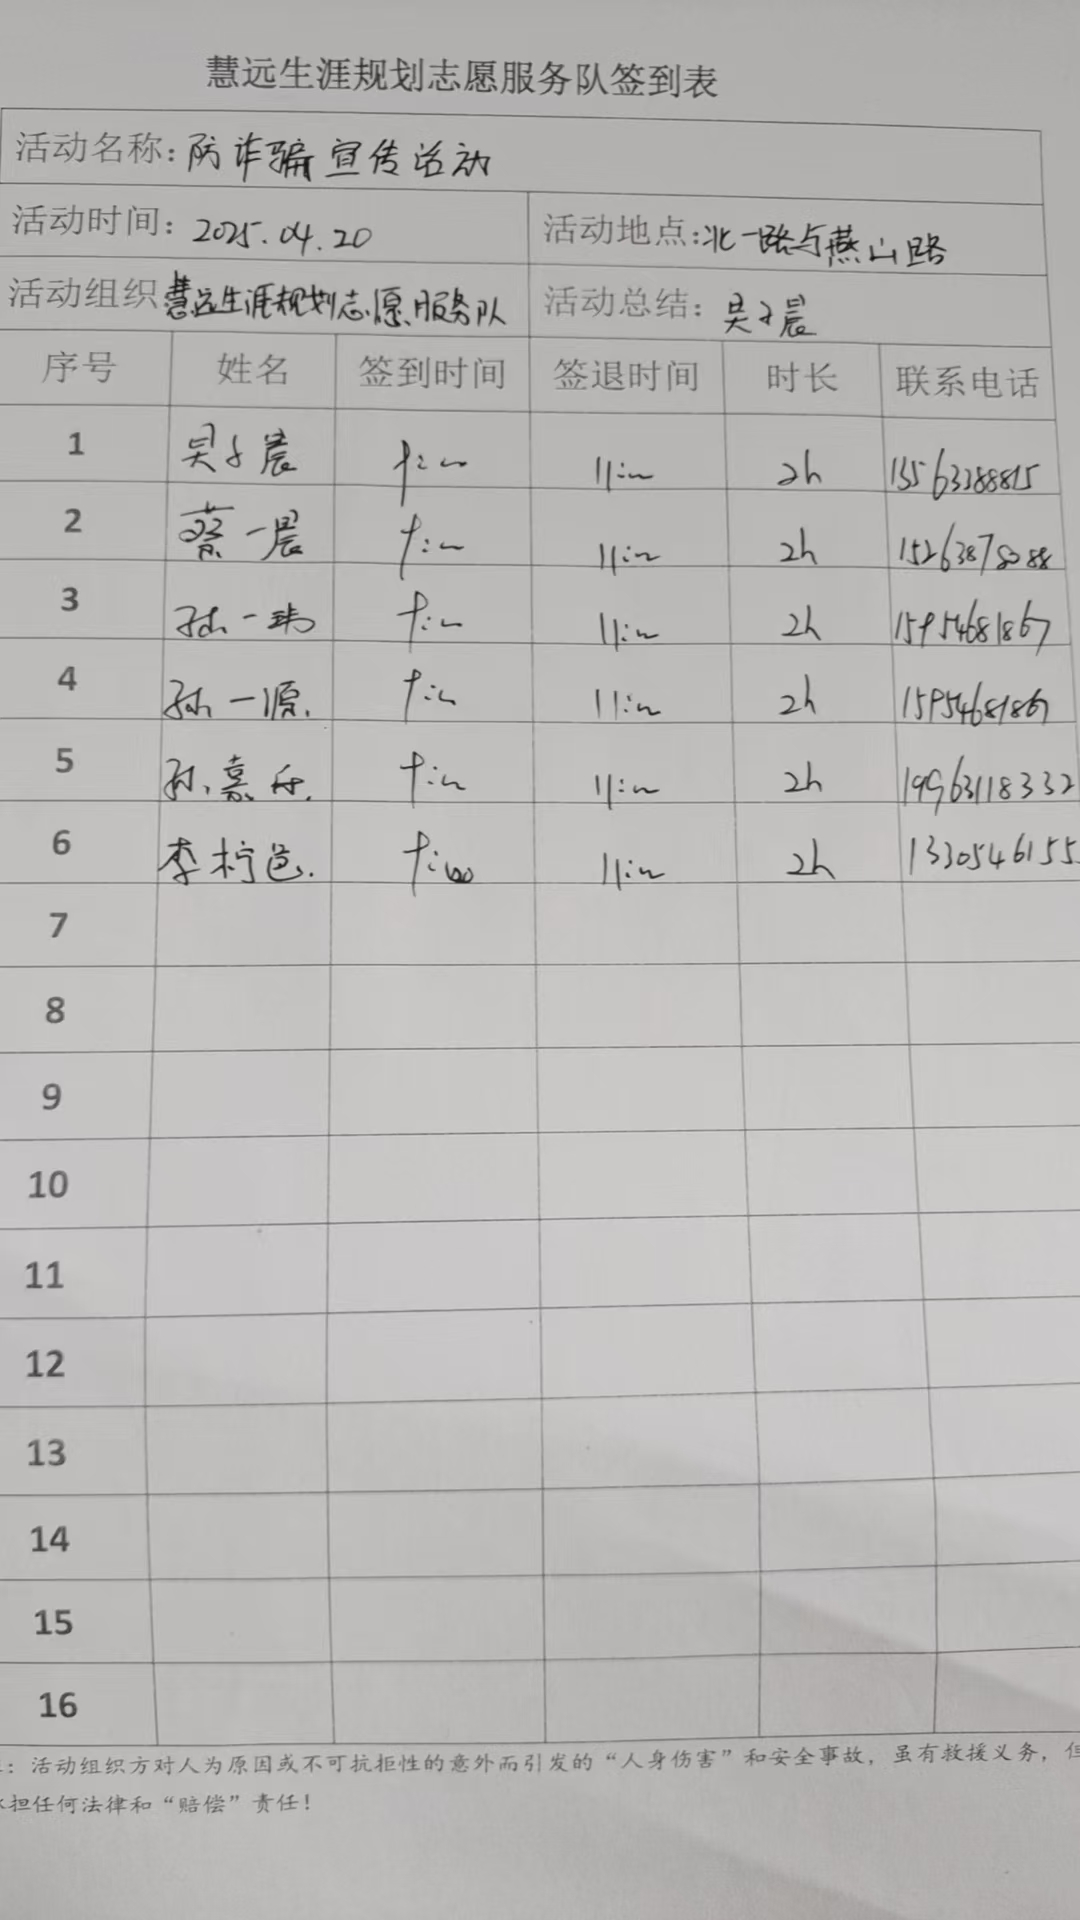 慧远生涯规划志愿服务队签到表
活动名称：防诈骗宣传活动
活动时间：2025.04.20 活动地点：北一路与燕山路
活动组织 慧远生涯规划志愿服务队 活动总结：吴子晨
序号 姓名 签到时间 签退时间 时长 联系电话
1 吴子晨 9:00 11:00 2h 13563388815
2 蔡一晨 9:00 11:00 2h
3 孙一玮 9:00 11:00 2h 15954681867
4 孙一源. 9:00 11:00 2h 15954681867
5 孙嘉 9:00 11:00 2h 19963118332
6 李柠邑. 9:00 11:00 2h 1330546155
7
8
9
10
11
12
13
14
15
16
：活动组织方对人为原因或不可抗拒性的意外而引发的“人身伤害”和安全事故，虽有救援义务，但
担任何法律和“赔偿”责任！